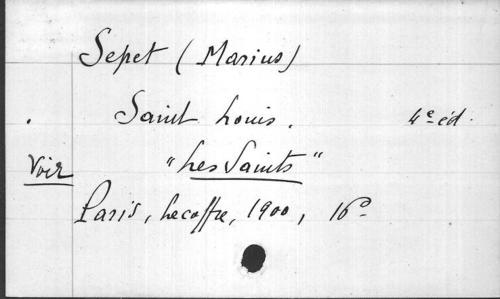 Sepet (Marius)
. Saint Louis. 4e éd.
Voir "Les Saints"
Paris, Lecoffre, 1900, 16o